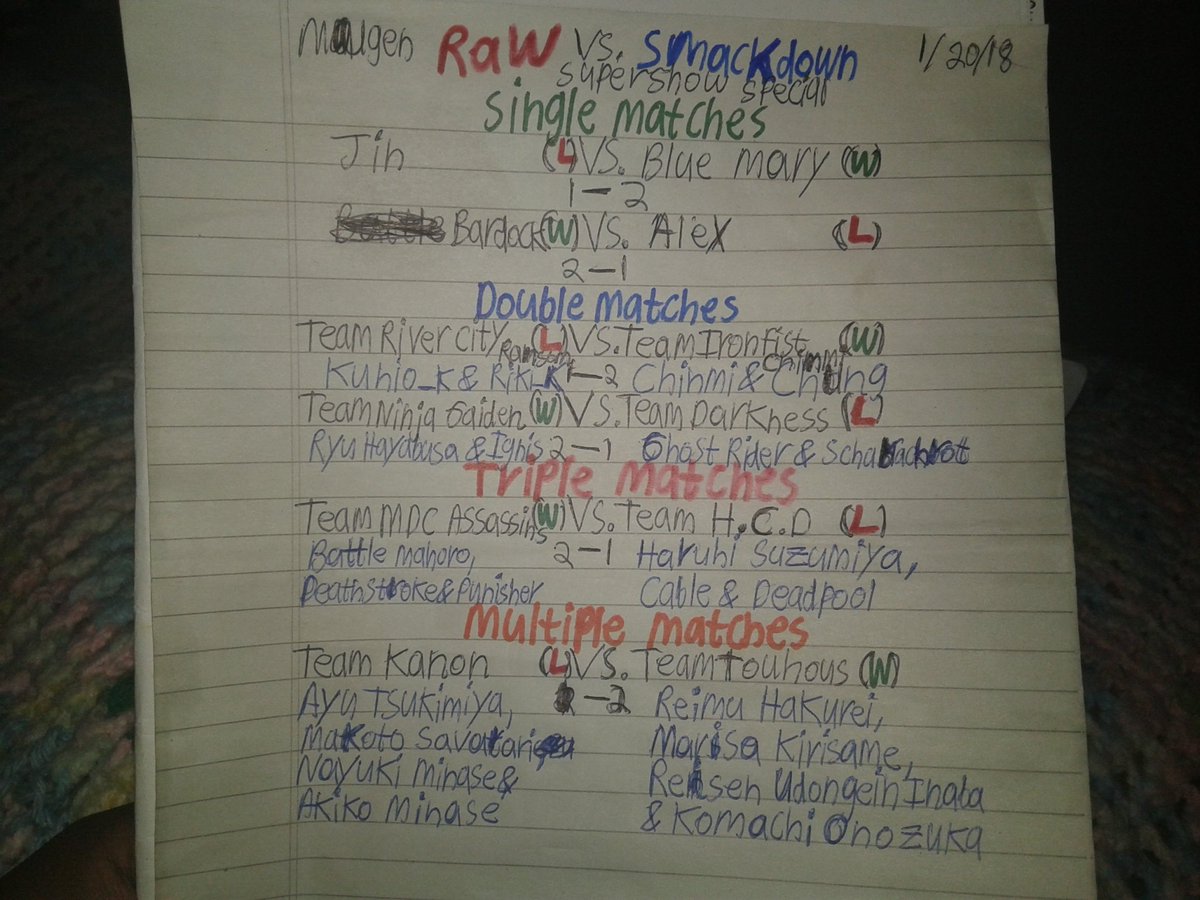 Maugen Raw vs. Smackdown 1/20/18
supershow special
Single matches
Jin (L) VS. Blue mary (W)
1-2
Bardock (W) VS. Alex (L)
2-1
Double matches
Team River city Ransom (L) VS. Team Iron fist Chinmi (W)
Kunio_K & Riki_K 1-2 Chinmi & Chung
Team Ninja Gaiden (W) VS. Team Darkness (L)
Ryu Hayabusa & Ignis 2-1 Ghost Rider &
Triple matches
Team MDC Assassins (W) VS. Team H.C.D (L)
Battle mahoro, 2-1 Haruhi Suzumiya,
Deathstroke & Punisher Cable & Deadpool
Multiple matches
Team Kanon (L) VS. Team Touhous (W)
Ayu Tsukimiya, -2 Reimu Hakurei,
Makoto Savatari Marisa Kirisame,
Nayuki minase & Reisen Udongein Inaba
Akiko Minase & Komachi Onozuka